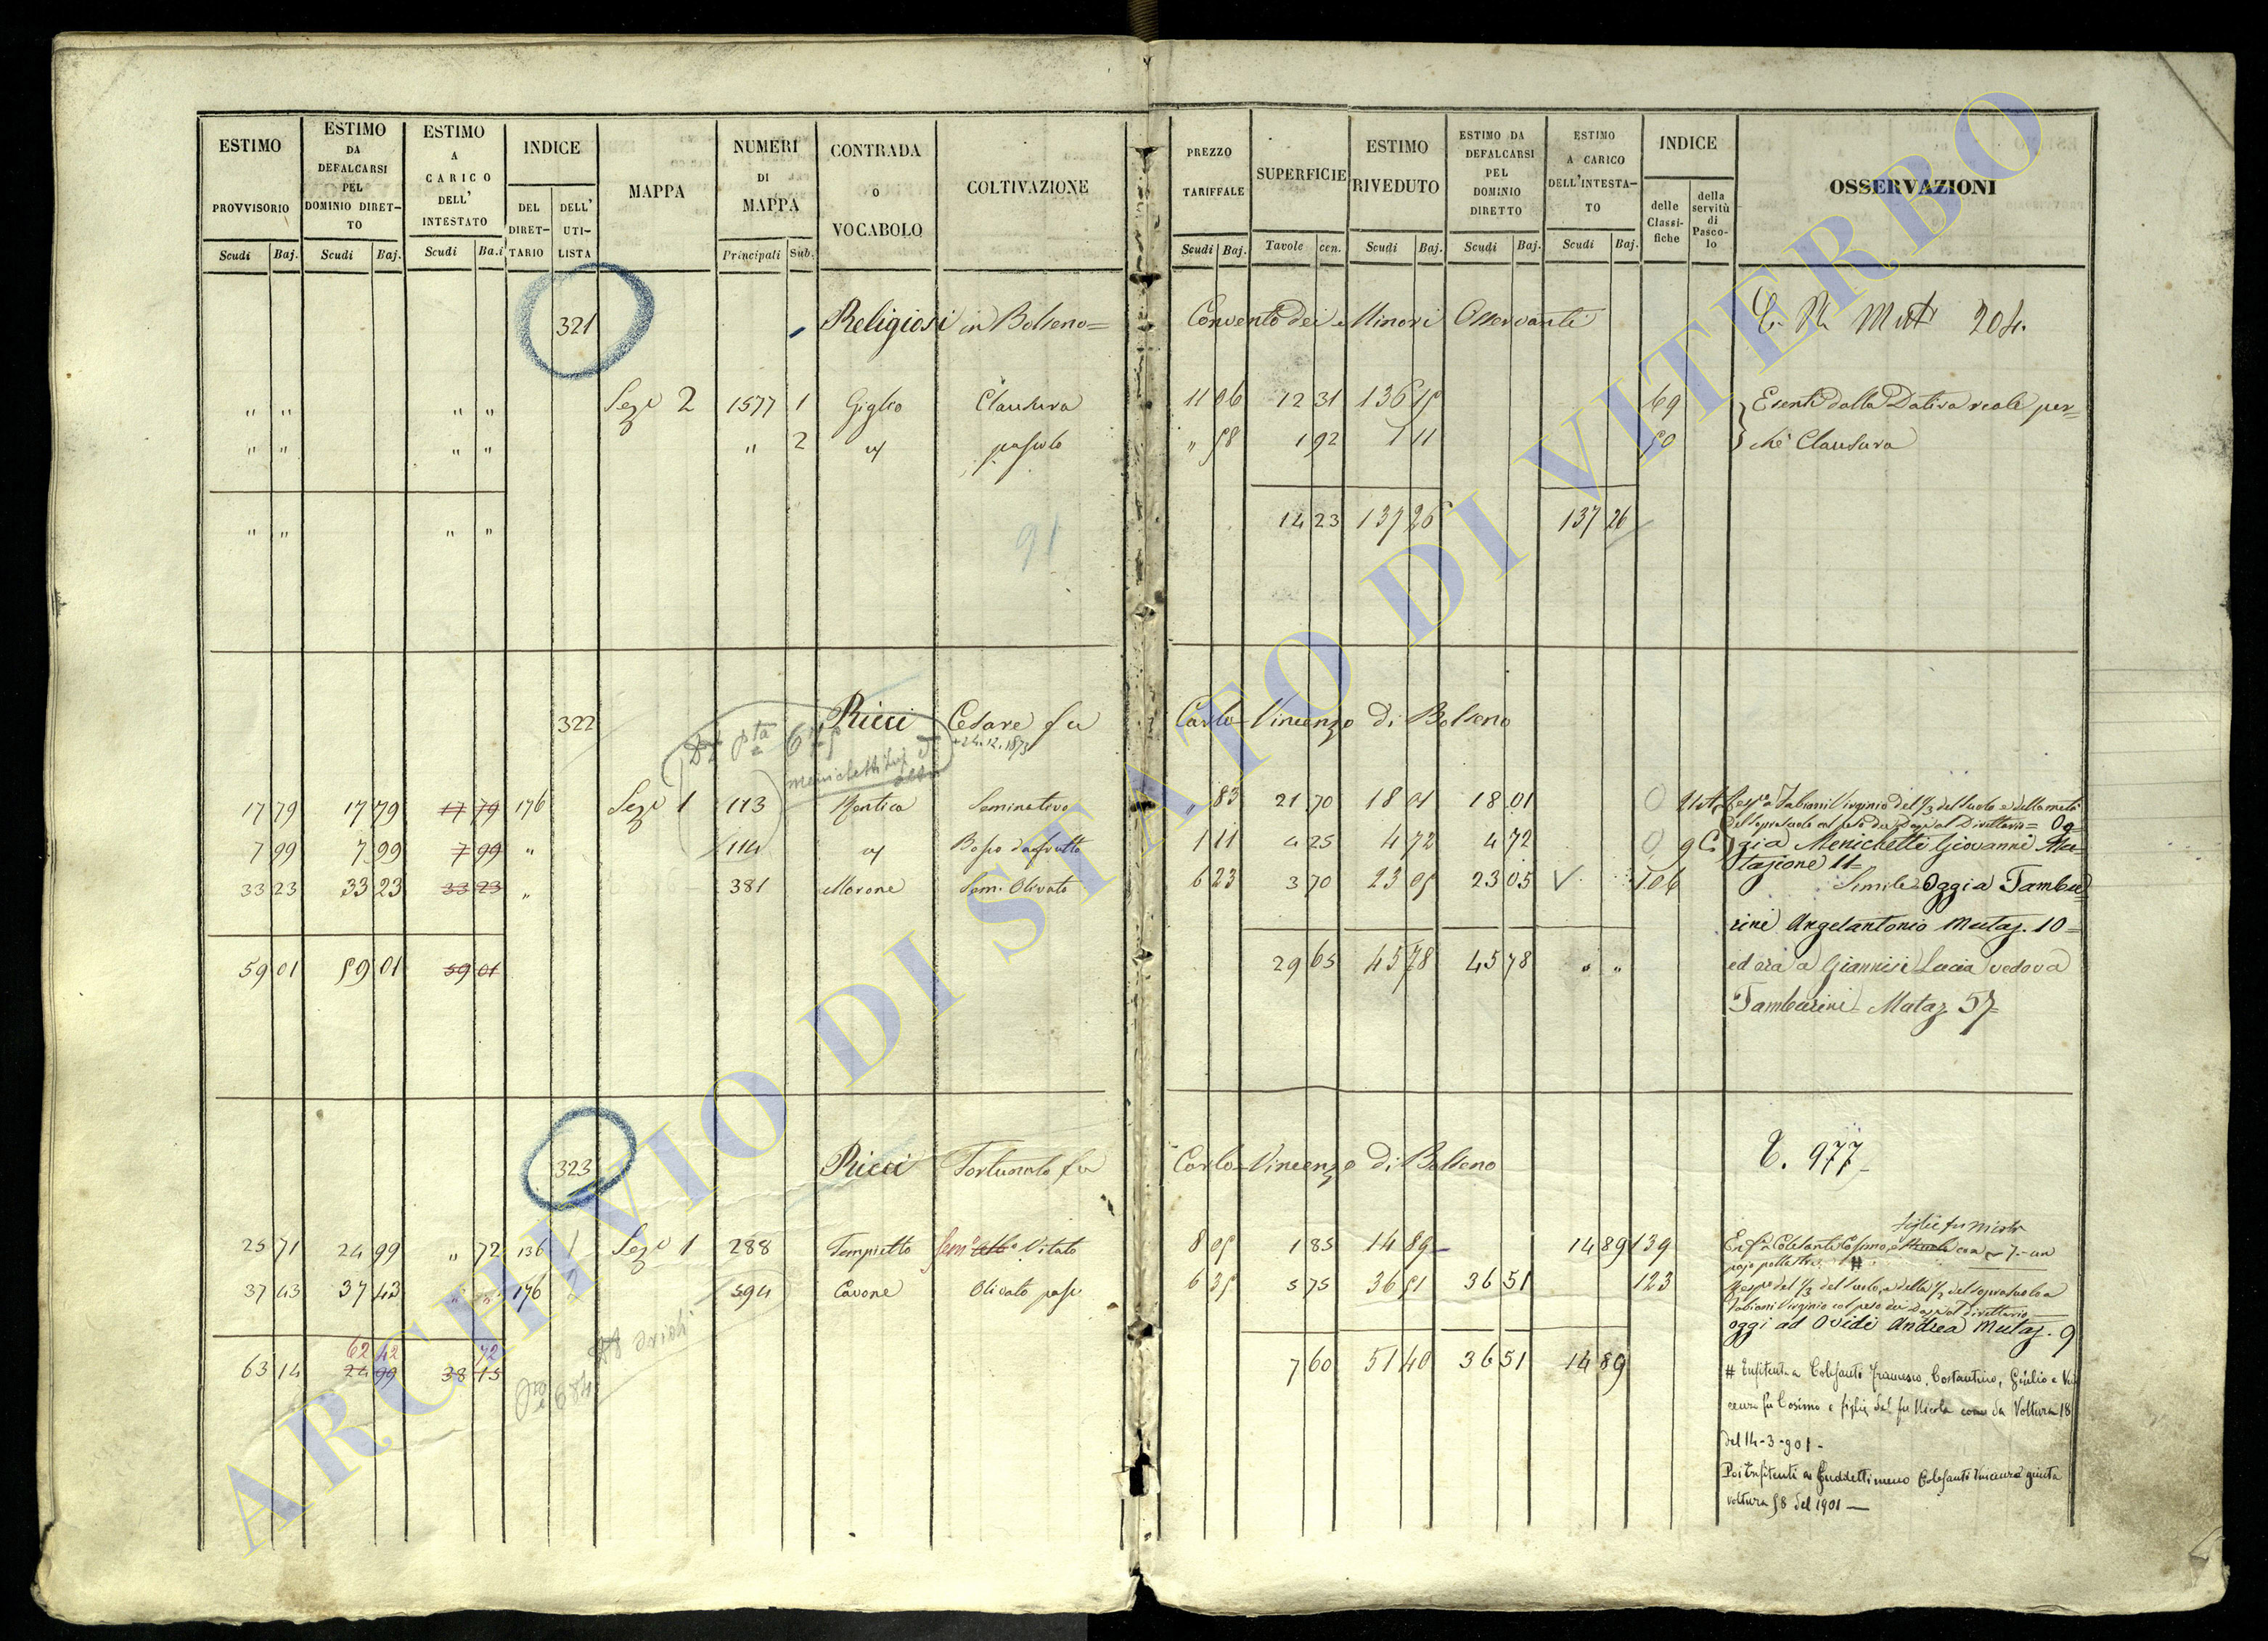 ESTIMO PROVVISORIO
Scudi Baj.
ESTIMO DA DEFALCARSI PEL DOMINIO DIRET-TO
Scudi Baj.
ESTIMO A CARICO DELL' INTESTATO
Scudi Ba.i
INDICE
DEL DIRET-TARIO
DELL' UTI-LISTA
MAPPA
NUMERI DI MAPPA
Principali Sub.
CONTRADA o VOCABOLO
COLTIVAZIONE
PREZZO TARIFFALE
Scudi Baj.
SUPERFICIE
Tavole cen.
ESTIMO RIVEDUTO
Scudi Baj.
ESTIMO DA DEFALCARSI PEL DOMINIO DIRETTO
Scudi Baj.
ESTIMO A CARICO DELL'INTESTA-TO
Scudi Baj.
INDICE
delle Classi-fiche
della servitù di Pasco-lo
OSSERVAZIONI
321 Religiosi in Bolseno= Convento dei Minori Osservanti 204.
" " " " Sez 2 1577 1 Giglio Clausura 11 06 12 31 136 15 69 Esenti dalla Dativa reale per=
" " " " " 2 pascolo " 58 1 92 1 11 50 chè Clausura
" " " " 14 23 137 26 137 26
91
322 Ricci Cesare fu Carlo Vincenzo di Bolseno
+24.12.1873
Menichetti
17 79 17 79 17 79 176 Sez 1 113 Mentica Seminativo " 83 21 70 18 01 18 01 Fabiani Virginio del 1/3 del suolo e della metà
del soprasuolo col peso di Dazj al Direttario= Og=
7 99 7 99 7 99 " 114 Bosco da frutto 1 11 4 25 4 72 4 72 gi a Menichetti Giovanni Mu=
tazione 11=
33 23 33 23 33 23 " 381 Morone Sem. Olivato 6 23 3 70 23 05 23 05 106 Simile Oggi a Tambu=
rini Angelantonio Mutaz. 10=
59 01 59 01 59 01 29 65 45 78 45 78 " " ed ora a Giannisi Lucia vedova
Tamburini Mutaz. 57=
323 Ricci Fortunato fu Carlo Vincenzo di Bolseno 977
figlie fu Nicola
25 71 24 99 " 72 136 1 Sez 1 288 Tempietto Sem. Vitato 8 05 1 85 14 89 14 89 139
pajo pollastri. #
37 43 37 43 " " 176 2 594 Cavone Olivato pasc. 6 35 5 75 36 51 36 51 123 del 1/3 del suolo, e della 1/2 del soprasuolo a
Fabiani Virginio col peso di Dazj al direttario
oggi ad Ovidi Andrea Mutaz. 9
62 42 72
63 14 24 99 38 15 7 60 51 40 36 51 14 89
684
# Enfiteuti a Colesanti Francesco, Costantino, Giulio e Vin
cenzo fu Cosimo e figlie del fu Nicola come da Voltura 18
del 14-3-901-
Poi Enfiteuti i suddetti meno Colesanti Vincenzo giusta
voltura 58 del 1901 —
ARCHIVIO DI STATO DI VITERBO